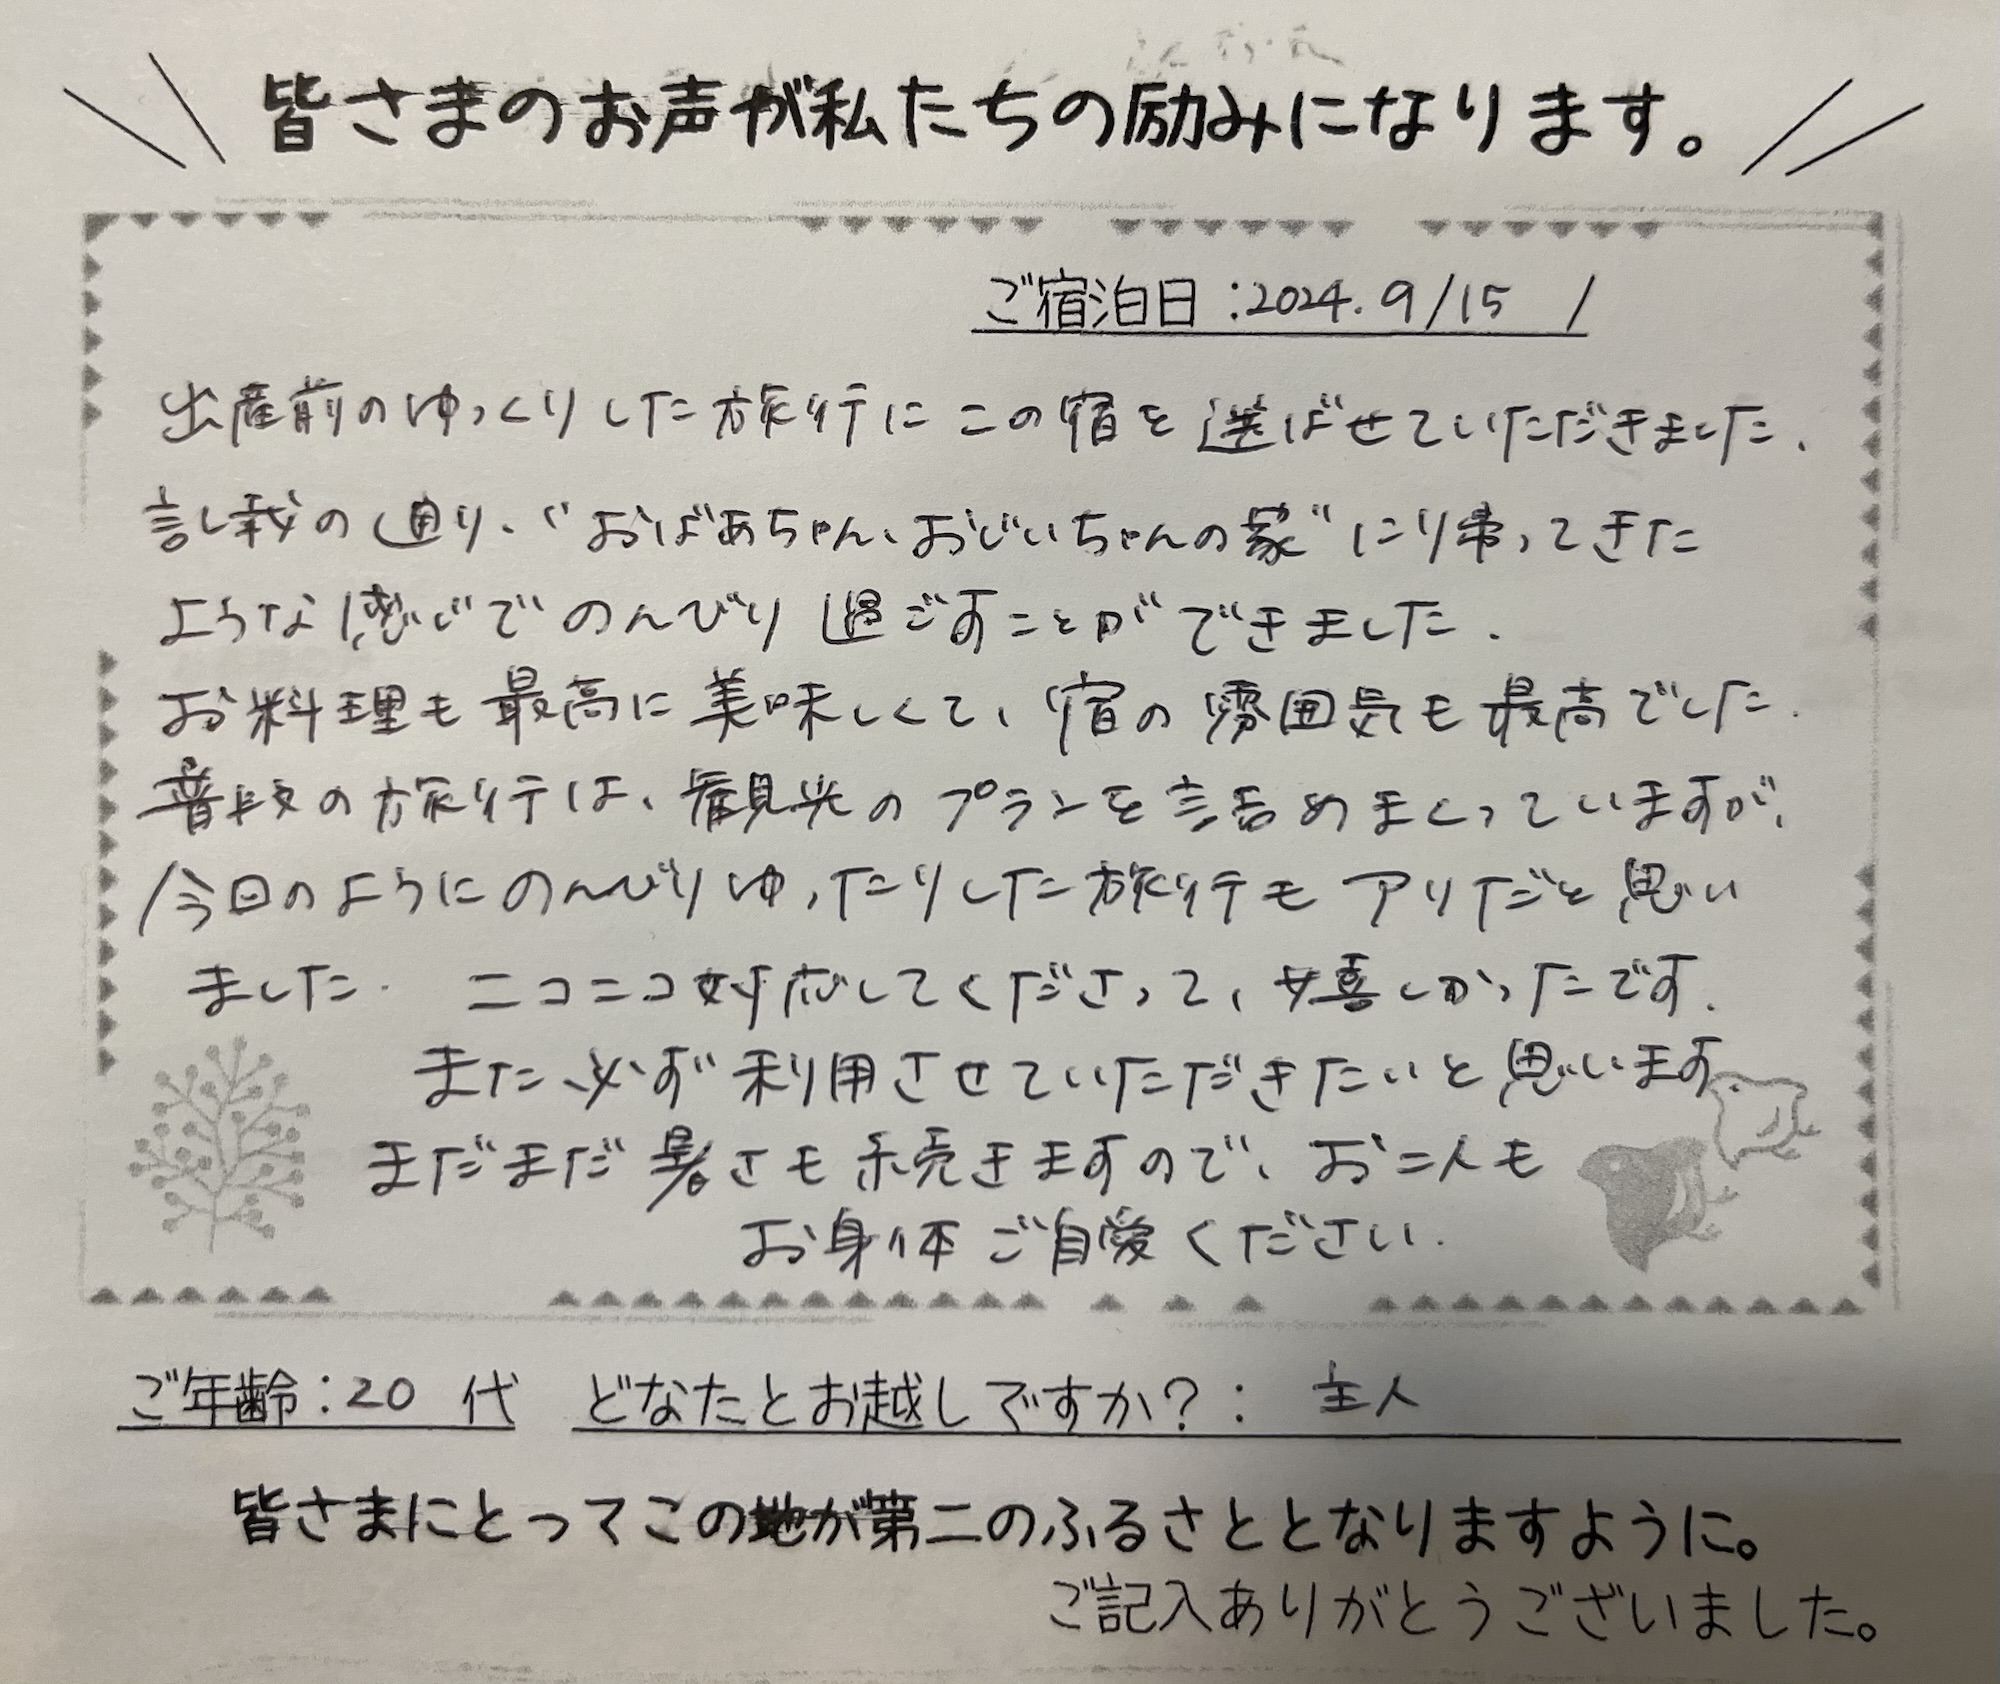 皆さまのお声が私たちの励みになります。
ご宿泊日:2024.9/15 /
出産前のゆっくりした旅行にこの宿を選ばせていただきました.
記載の通り、“おばあちゃん、おじいちゃんの家”に帰ってきた
ような感じでのんびり過ごすことができました.
お料理も最高に美味しくて、宿の雰囲気も最高でした.
普段の旅行は、観光のプランを詰めまくっていますが、
今日のようにのんびりゆったりした旅行もアリだと思い
ました. ニコニコ対応してくださって、嬉しかったです.
また必ず利用させていただきたいと思います.
まだまだ暑さも続きますので、お二人も
お身体ご自愛ください.
ご年齢:20 代 どなたとお越しですか?: 主人
皆さまにとってこの地が第二のふるさととなりますように。
ご記入ありがとうございました。